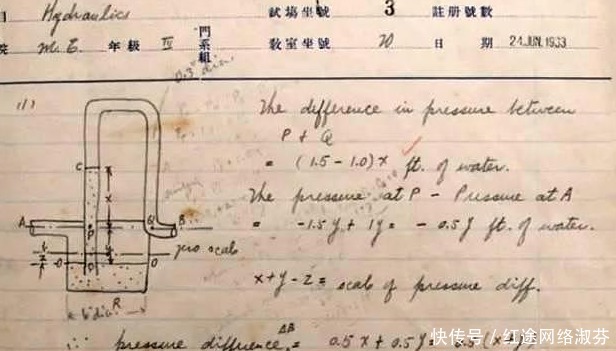 目 Hydraulics 試場坐號 3 註册號數
院 M.E. 年級 IV 門系組 敎室坐號 70 日期 24.JUN.1933
0.3" dia.
(1)
The difference in pressure between
P & Q
= (1.5 - 1.0)x ft. of water.
The pressure at P - Pressure at A
= -1.5y + 1y = -0.5y ft. of water.
x+y-z = scale of pressure diff.
∴ pressure diffrence AB = 0.5x + 0.5y = 0.5(x+y)
C
x
A
P
Q
B
y
zero scale
z
O
O
O
R
6" dia.
快传号/红途网络淑芬